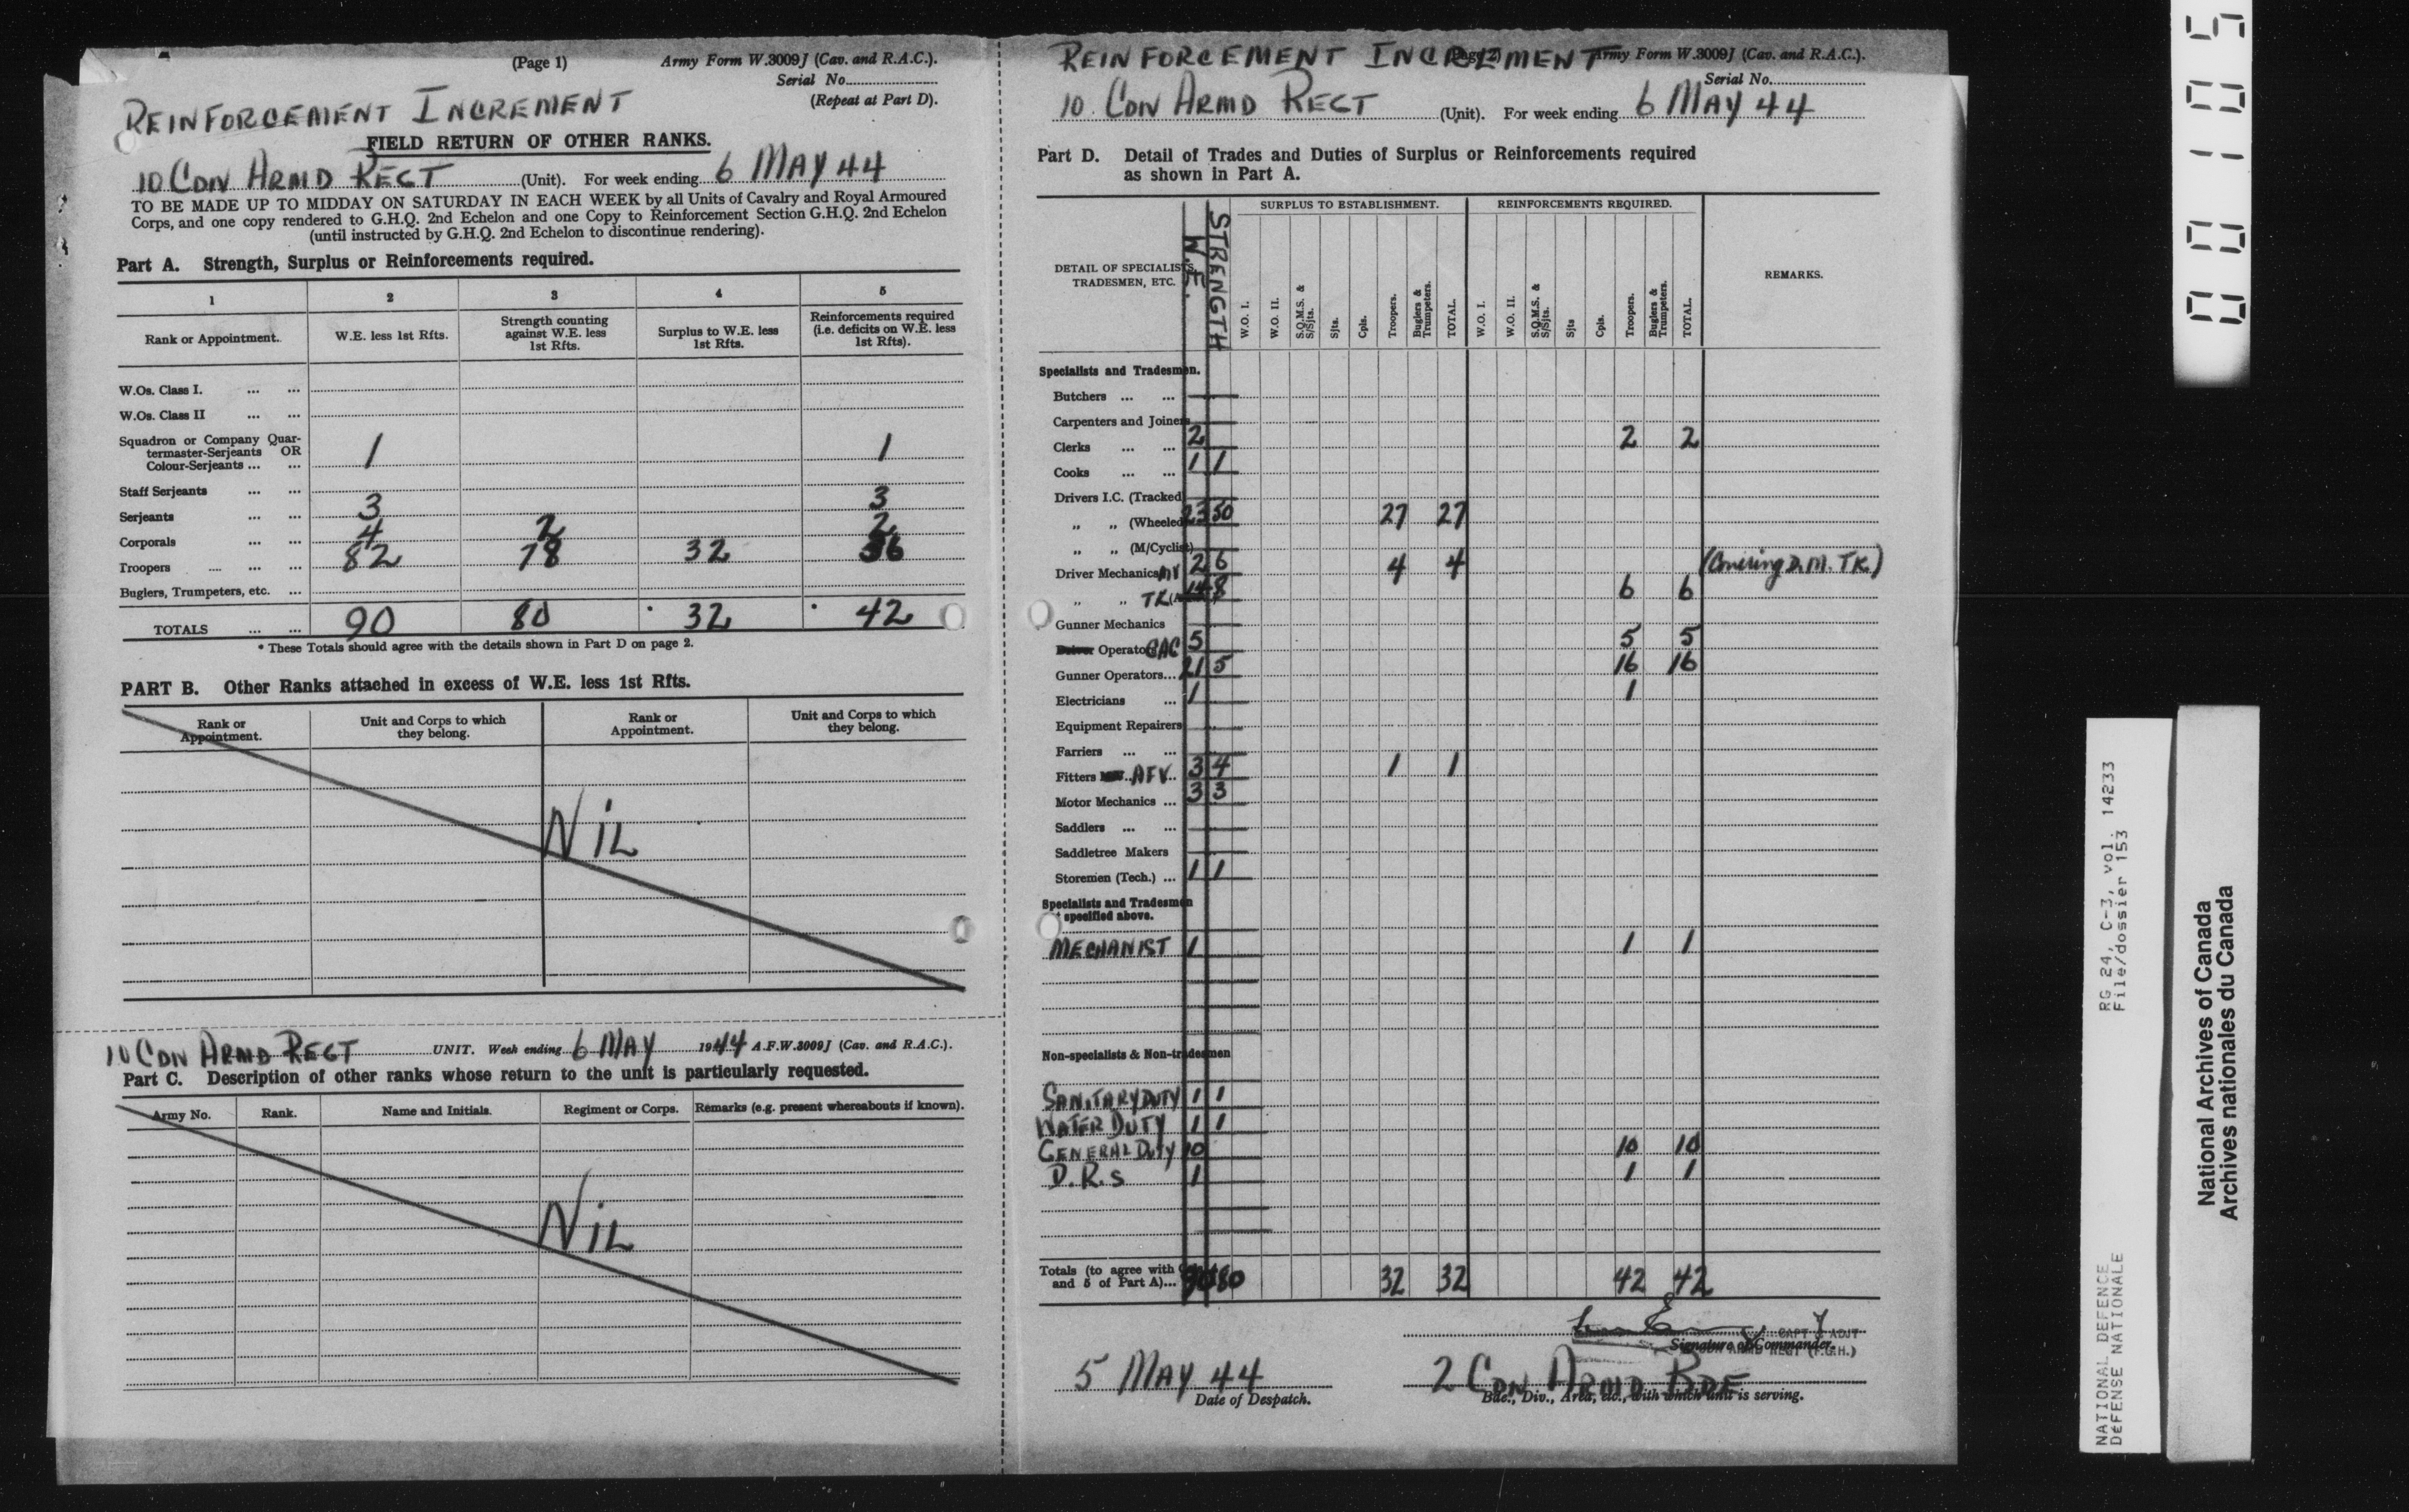 (Page 1) Army Form W.3009J (Cav. and R.A.C.).
Serial No.
(Repeat at Part D).
REINFORCEMENT INCREMENT
FIELD RETURN OF OTHER RANKS.
10 CDN ARMD REGT (Unit). For week ending 6 MAY 44
TO BE MADE UP TO MIDDAY ON SATURDAY IN EACH WEEK by all Units of Cavalry and Royal Armoured
Corps, and one copy rendered to G.H.Q. 2nd Echelon and one Copy to Reinforcement Section G.H.Q. 2nd Echelon
(until instructed by G.H.Q. 2nd Echelon to discontinue rendering).
Part A. Strength, Surplus or Reinforcements required.
1 2 3 4 5
Rank or Appointment. W.E. less 1st Rfts. Strength counting against W.E. less 1st Rfts. Surplus to W.E. less 1st Rfts. Reinforcements required (i.e. deficits on W.E. less 1st Rfts).
W.Os. Class I. ... ...
W.Os. Class II ... ...
Squadron or Company Quar-
termaster-Serjeants OR
Colour-Serjeants ... ... 1 1
Staff Serjeants ... ...
Serjeants ... ... 3 3
Corporals ... ... 4 2 2
Troopers ... ... ... 82 78 32 36
Buglers, Trumpeters, etc. ...
TOTALS ... ... 90 80 * 32 * 42
* These Totals should agree with the details shown in Part D on page 2.
PART B. Other Ranks attached in excess of W.E. less 1st Rfts.
Rank or Appointment. Unit and Corps to which they belong. Rank or Appointment. Unit and Corps to which they belong.
NIL
10 CDN ARMD REGT UNIT. Week ending 6 MAY 1944 A.F.W.3009J (Cav. and R.A.C.).
Part C. Description of other ranks whose return to the unit is particularly requested.
Army No. Rank. Name and Initials. Regiment or Corps. Remarks (e.g. present whereabouts if known).
NIL
REINFORCEMENT INCREMENT Army Form W.3009J (Cav. and R.A.C.).
Serial No.
10 CDN ARMD REGT (Unit). For week ending 6 MAY 44
Part D. Detail of Trades and Duties of Surplus or Reinforcements required
as shown in Part A.
DETAIL OF SPECIALISTS, TRADESMEN, ETC. W.E. STRENGTH SURPLUS TO ESTABLISHMENT. REINFORCEMENTS REQUIRED. REMARKS.
W.O. I. W.O. II. S.Q.M.S. & S/Sjts. Sjts. Cpls. Troopers. Buglers & Trumpeters. TOTAL. W.O. I. W.O. II. S.Q.M.S. & S/Sjts. Sjts Cpls. Troopers. Buglers & Trumpeters. TOTAL.
Specialists and Tradesmen.
Butchers ... ...
Carpenters and Joiners
Clerks ... ... 2 2 2
Cooks ... ... 1 1
Drivers I.C. (Tracked)
„ „ (Wheeled) 23 50 27 27
„ „ (M/Cyclist)
Driver Mechanics MV 2 6 4 4 (Covering D.M. TK.)
„ „ TK 14 8 6 6
Gunner Mechanics
Operator CAC 5 5 5
Gunner Operators... 21 5 16 16
Electricians ... 1 1
Equipment Repairers
Farriers ... ...
Fitters AFV 3 4 1 1
Motor Mechanics ... 3 3
Saddlers ... ...
Saddletree Makers
Storemen (Tech.) ... 1 1
Specialists and Tradesmen
specified above.
MECHANIST 1 1 1
Non-specialists & Non-tradesmen
SANITARY DUTY 1 1
WATER DUTY 1 1
GENERAL DUTY 10 10 10
D.R.s 1 1 1
Totals (to agree with
and 5 of Part A)... 90 80 32 32 42 42
CAPT ADJT
Signature of Commander.
5 MAY 44 2 CDN ARMD BDE
Date of Despatch. Bde., Div., Area, etc., with which unit is serving.
001105
RG 24, C-3, vol. 14233
File/dossier 153
NATIONAL DEFENCE
DEFENSE NATIONALE
National Archives of Canada
Archives nationales du Canada